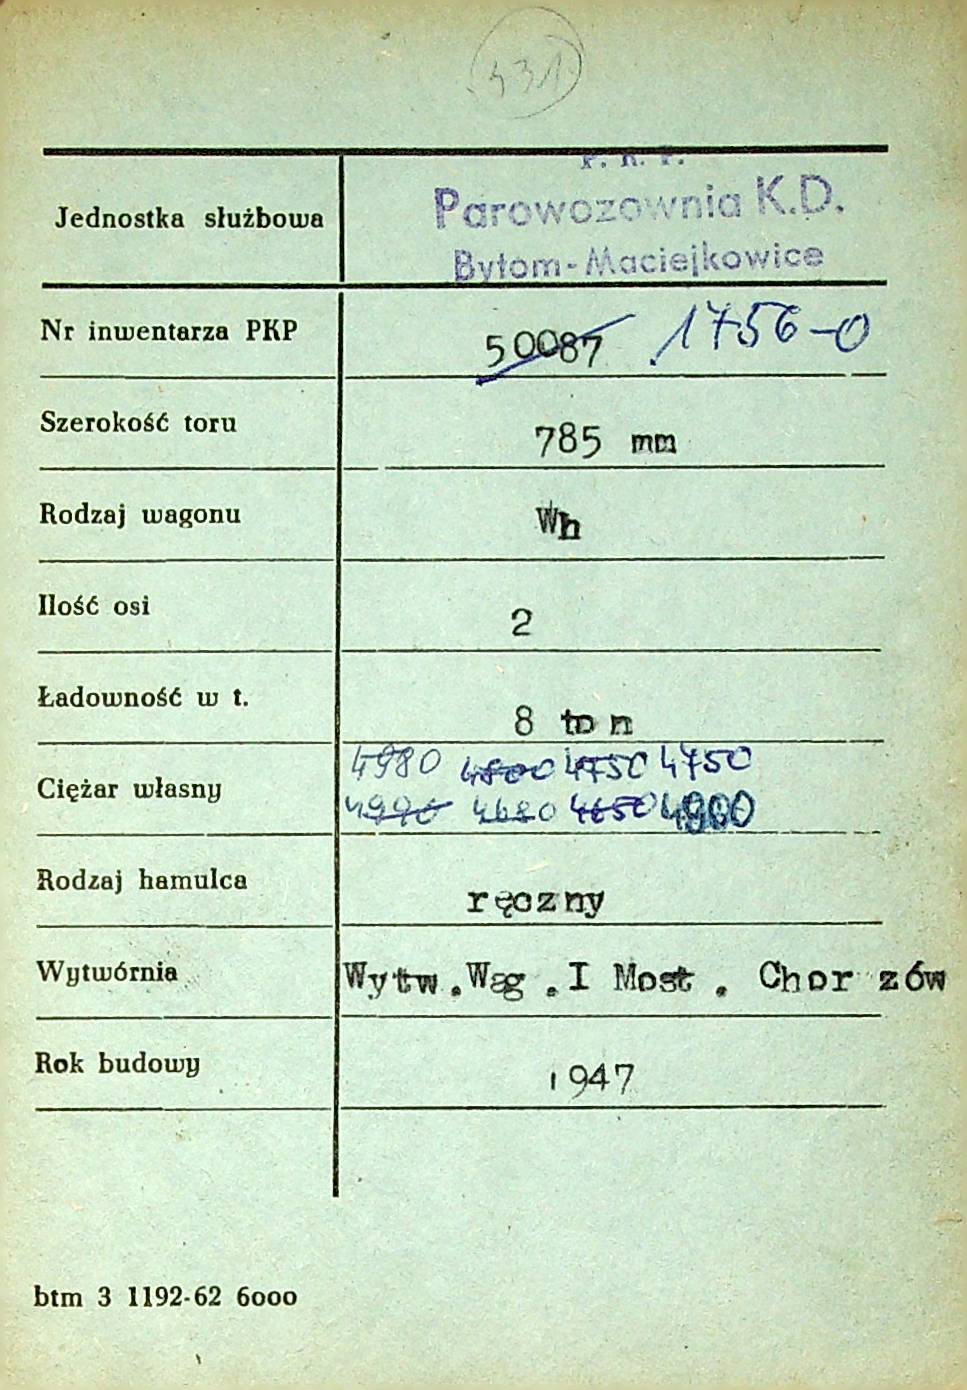 431
P. K. P.
Jednostka służbowa Parowozownia K.D.
Bytom-Maciejkowice
Nr inwentarza PKP 50087 1756-0
Szerokość toru 785 mm
Rodzaj wagonu Wh
Ilość osi 2
Ładowność w t. 8 ton
4980 4800 4750 4750
Ciężar własny
4990 4680 4650
Rodzaj hamulca ręczny
Wytwórnia Wytw.Wag.I Most. Chorzów
Rok budowy 1947
btm 3 1192-62 6000